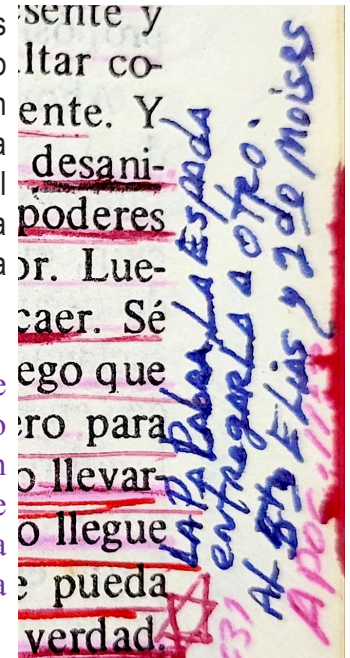 s
o
n
a
l
a
a
e
o
n
e
a
a
sente y
ltar co-
ente. Y
desani-
poderes
or. Lue-
caer. Sé
ego que
ero para
o llevar-
o llegue
e pueda
verdad.
LA PALABRA LA ESPADA
entregarla a OTRO.
Elias y 2 de Moises
Apoc. 11:3